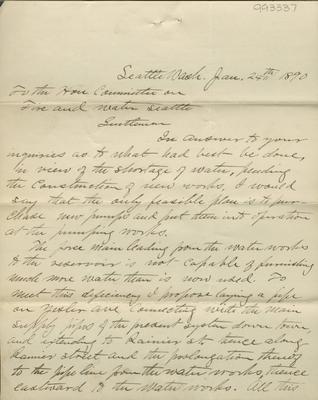 993337
Seattle Wash. Jan. 24th 1890
To the Hon Committee on
Fire and Water Seattle
Gentlemen
In answer to your
inquiries as to what had best be done,
in view of the shortage of water, pending
the construction of new works, I would
say that the only feasible plan is to pur-
chase new pumps and put them into operation
at the pumping works.
The force main leading from the water works
to the reservoir is not capable of furnishing
much more water than is now used. To
meet this I propose laying a pipe
on Yesler Ave connecting with the main
supply pipes of the present system down town,
and extending to Rainier St. thence along
Rainier Street and the prolongation thereof
to the pipe line from the water works, thence
eastward to the water works. All this